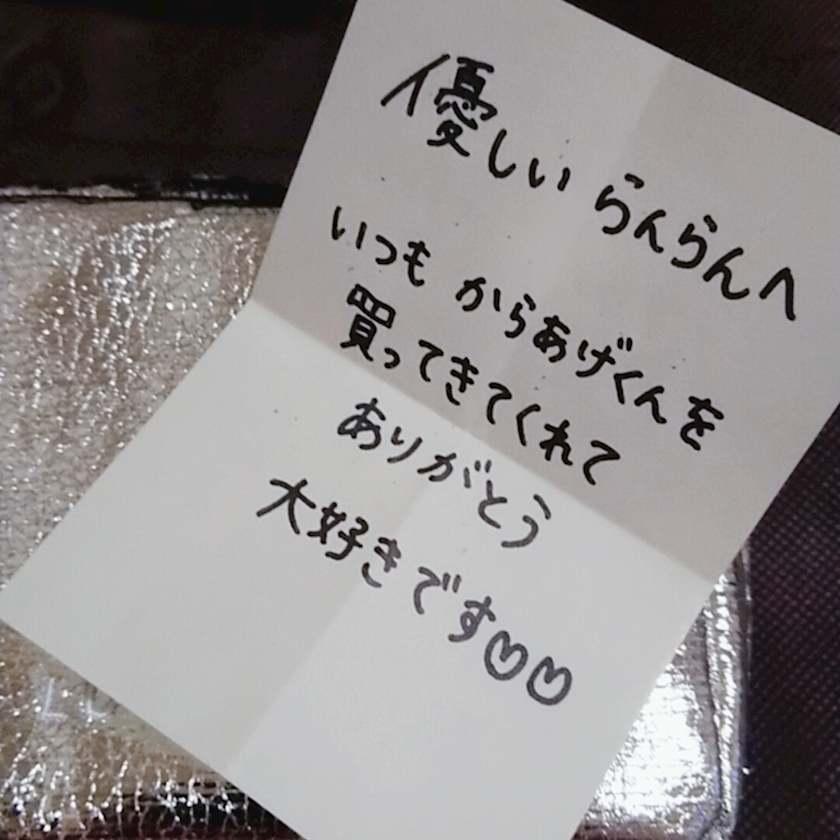 優しいらんらんへ
いつも からあげくんを
買ってきてくれて
ありがとう
大好きです♡♡